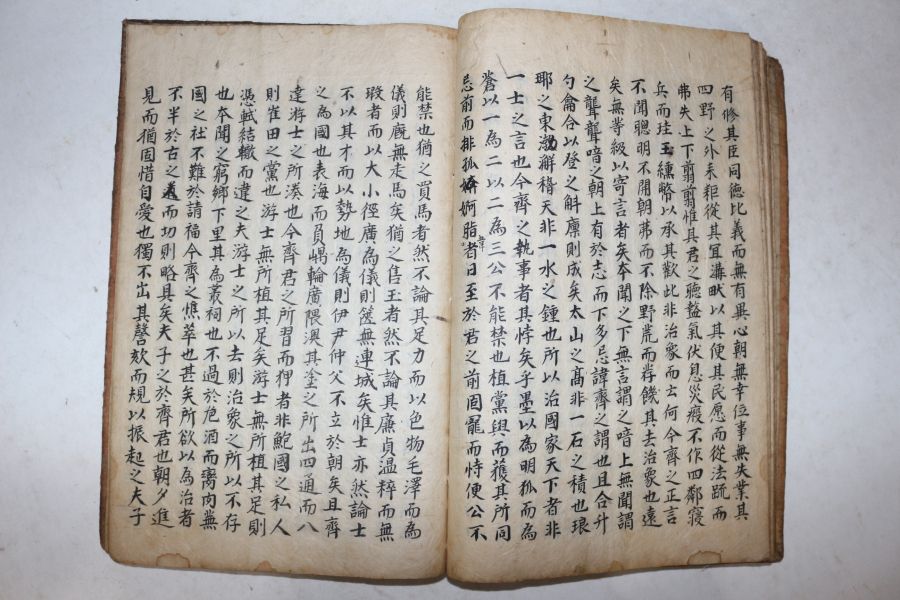 有修其臣同德比義而無有異心朝無幸位事無失業其
四野之外耒耟從其宜溝畎以其便其民愿而從法䟽而
弗失上下翦翦惟其君之聽盭氣伏息災瘕不作四鄰寢
兵而珪玉纁幣以承其歡此非治象而云何今齊之正言
不聞聰明不開朝茀而不除野荒而荐饑其去治象也遠
矣無等級以寄言者矣本聞之下無言謂之喑上無聞謂
之聾聾喑之朝上有於志而下多忌諱齊之謂也且合升
勺龠合以登之斛廩則成矣太山之高非一石之積也琅
耶之東渤澥稽天非一水之鍾也所以治國家天下者非
一士之言也今齊之執事者其悖矣乎墨以為明狐而為
蒼以一為二以二為三公不能禁也植黨與而獲其所同
忌前而排孤媕婀脂韋者日至於君之前固寵而恃便公不
能禁也猶之買馬者然不論其足力而以色物毛澤而為
儀則廐無走馬矣猶之售玉者然不論其廉貞溫粹而無
瑕者而以大小徑廣為儀則篋無連城矣惟士亦然論士
不以其才而以勢地為儀則伊尹仲父不立於朝矣且齊
之為國也表海而負嵎輪廣隈澳其塗之所出四通而八
達游士之所湊也今齊君之所習而狎者非鮑國之私人
則崔田之黨也游士無所植其足矣游士無所植其足則
憑軾結轍而違之夫游士之所以去則治象之所以不存
也本聞之窮鄉下里其為叢祠也不過於卮酒而臠肉無
國之社不難於請福今齊之憔萃也甚矣所欲以為治者
不半於古之道而功則略具矣夫子之於齊君也朝夕進
見而猶固惜自愛也獨不出其謦欬而規以振起之夫子